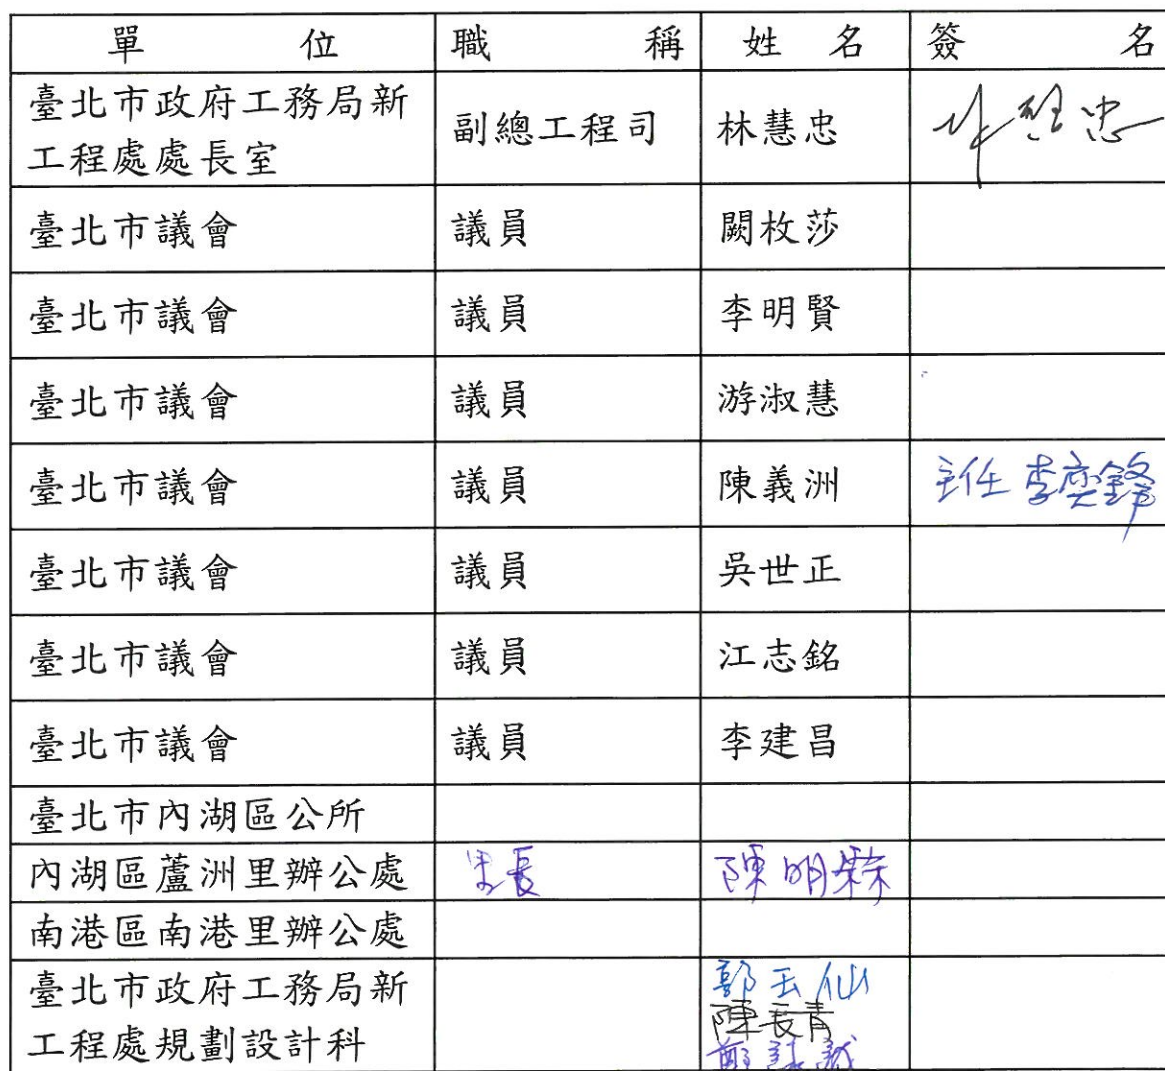 單 位 職 稱 姓 名 簽 名
臺北市政府工務局新
工程處處長室 副總工程司 林慧忠 林慧忠
臺北市議會 議員 闕枚莎
臺北市議會 議員 李明賢
臺北市議會 議員 游淑慧
臺北市議會 議員 陳義洲 主任 李奕鋒
臺北市議會 議員 吳世正
臺北市議會 議員 江志銘
臺北市議會 議員 李建昌
臺北市內湖區公所
內湖區蘆洲里辦公處 里長 陳明
南港區南港里辦公處
臺北市政府工務局新
工程處規劃設計科 郭玉仙
陳長青
誠